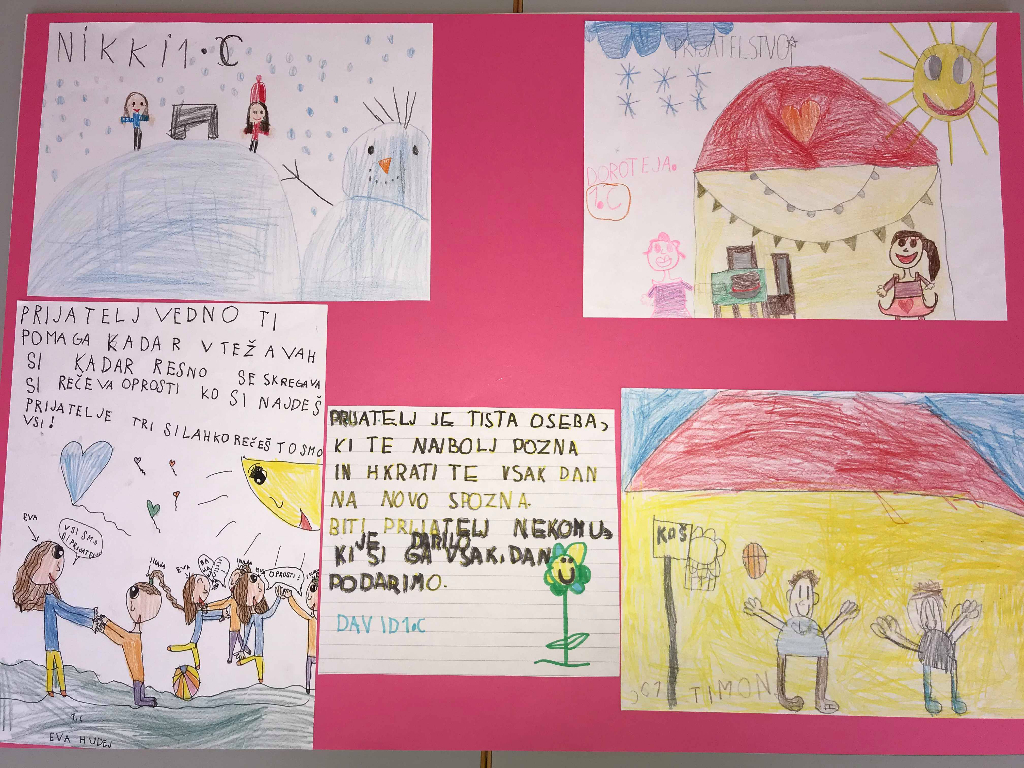 NIKKI 1.C
PRIJATELSTVO
DOROTEJA.
1.C
PRIJATELJ VEDNO TI
POMAGA KADAR V TEŽAVAH
SI KADAR RESNO SE SKREGAVA
SI REČEVA OPROSTI KO SI NAJDEŠ
PRIJATELJE TRI SI LAHKO REČEŠ TO SMO
VSI!
EVA
VSI SMO
SI PRIJATELJI
EVA
OPROSTI!
1.C
EVA HUDEJ
PRIJATELJ JE TISTA OSEBA,
KI TE NAJBOLJ POZNA
IN HKRATI TE VSAK DAN
NA NOVO SPOZNA.
BITI PRIJATELJ NEKOMU,
JE DARILO
KI SI GA VSAK.DAN
PODARIMO.
DAVID1.C
KOŠ
TIMON